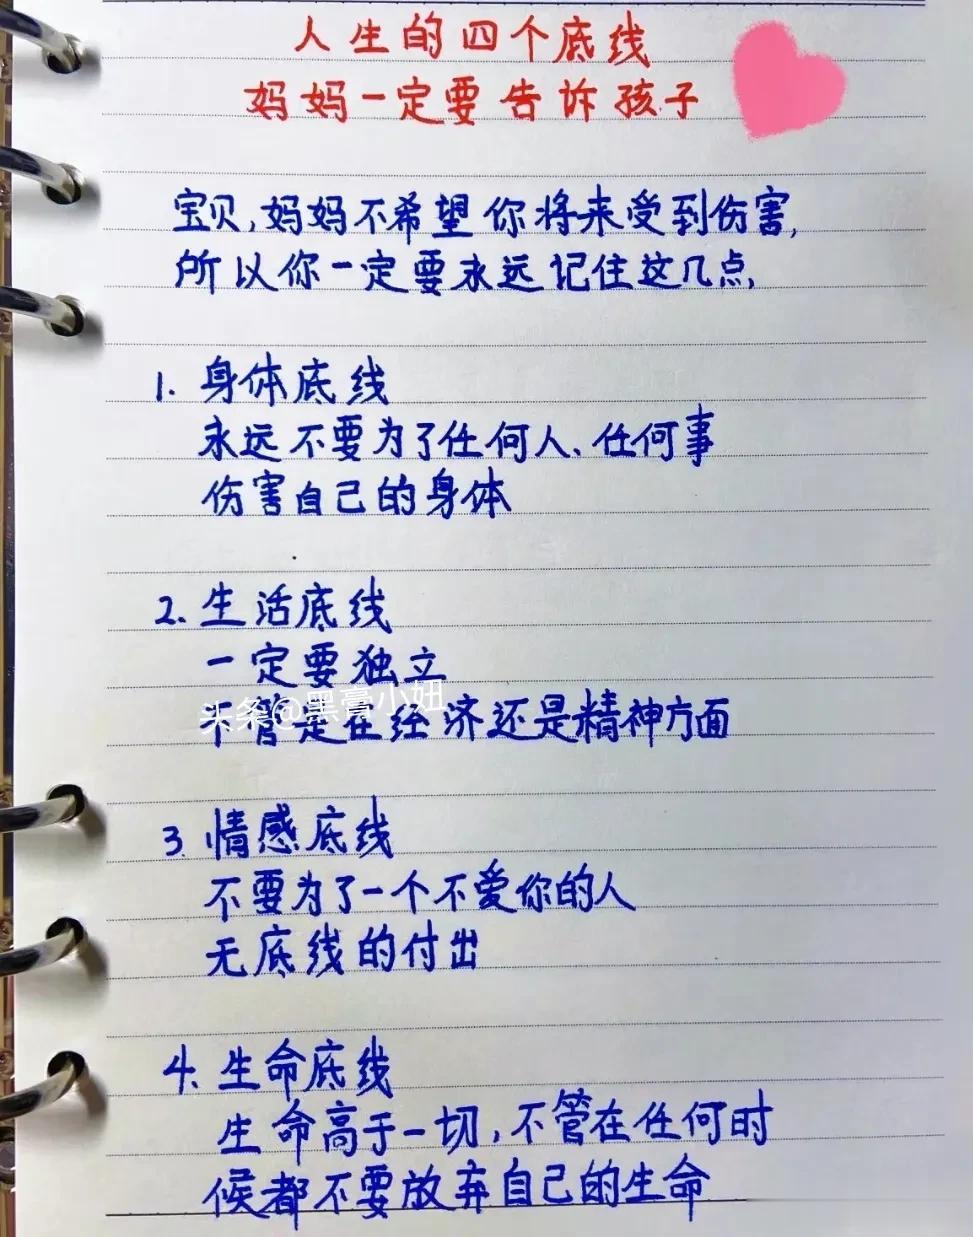 人生的四个底线
妈妈一定要告诉孩子
宝贝,妈妈不希望你将来受到伤害,
所以你一定要永远记住这几点,
1. 身体底线
永远不要为了任何人、任何事
伤害自己的身体
2. 生活底线
一定要独立
头条@黑膏小妞
不管是在经济还是精神方面
3. 情感底线
不要为了一个不爱你的人
无底线的付出
4. 生命底线
生命高于一切,不管在任何时
候都不要放弃自己的生命